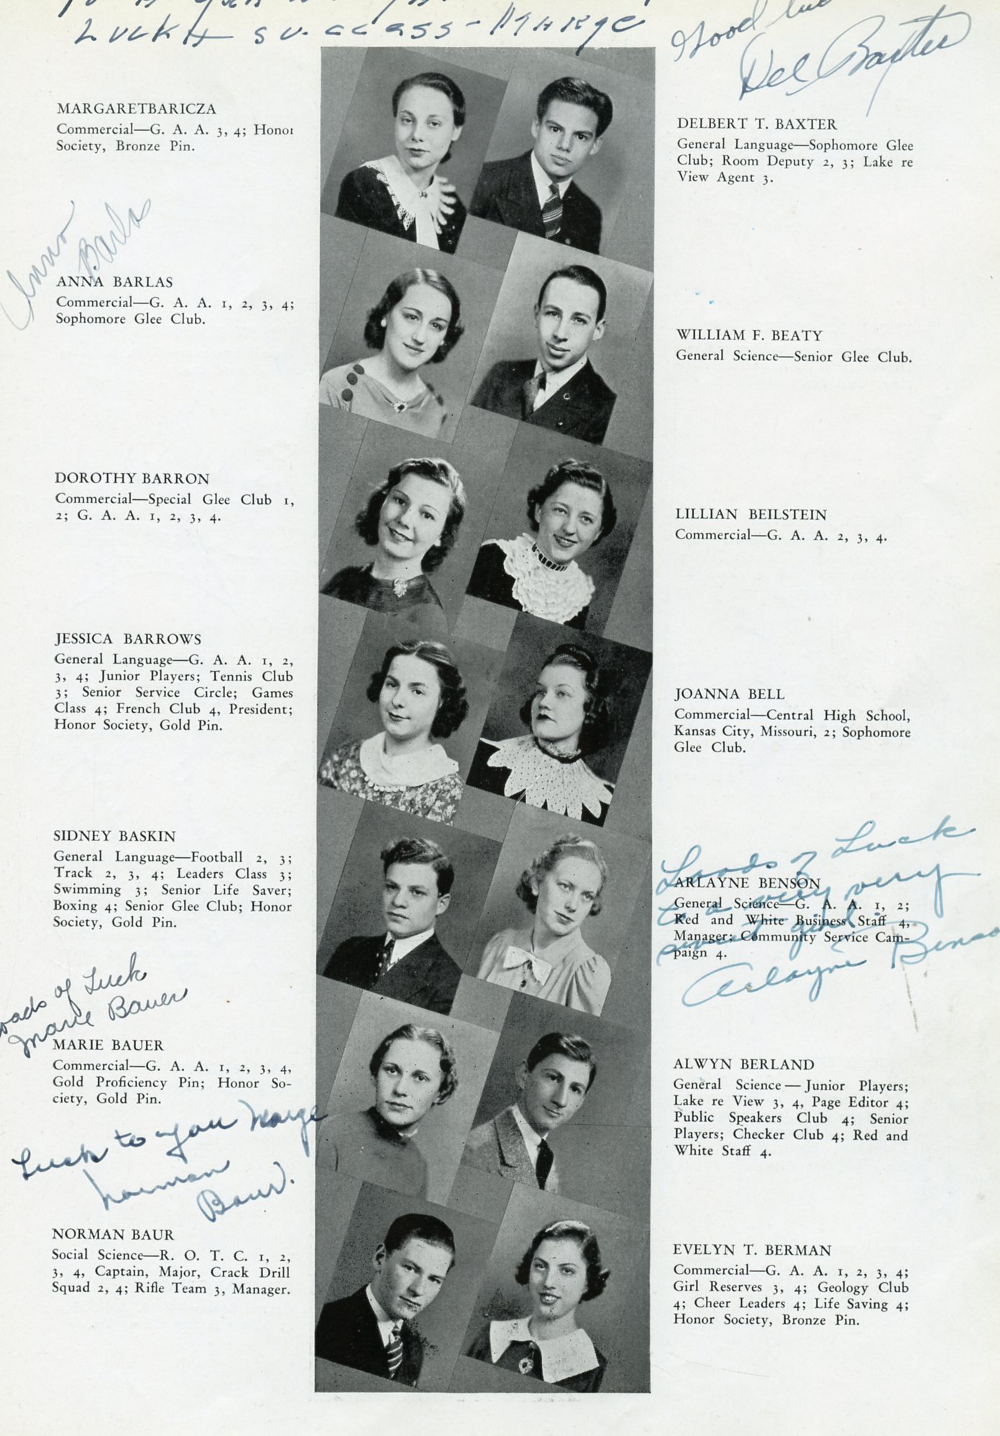 Luck & success - Marge
Good luck
Del Baxter
MARGARETBARICZA
Commercial—G. A. A. 3, 4; Honor
Society, Bronze Pin.
Anna
Barlas
ANNA BARLAS
Commercial—G. A. A. 1, 2, 3, 4;
Sophomore Glee Club.
DOROTHY BARRON
Commercial—Special Glee Club 1,
2; G. A. A. 1, 2, 3, 4.
JESSICA BARROWS
General Language—G. A. A. 1, 2,
3, 4; Junior Players; Tennis Club
3; Senior Service Circle; Games
Class 4; French Club 4, President;
Honor Society, Gold Pin.
SIDNEY BASKIN
General Language—Football 2, 3;
Track 2, 3, 4; Leaders Class 3;
Swimming 3; Senior Life Saver;
Boxing 4; Senior Glee Club; Honor
Society, Gold Pin.
Loads of Luck
Marie Bauer
MARIE BAUER
Commercial—G. A. A. 1, 2, 3, 4,
Gold Proficiency Pin; Honor So-
ciety, Gold Pin.
Luck to you Marge
Norman
Baur.
NORMAN BAUR
Social Science—R. O. T. C. 1, 2,
3, 4, Captain, Major, Crack Drill
Squad 2, 4; Rifle Team 3, Manager.
DELBERT T. BAXTER
General Language—Sophomore Glee
Club; Room Deputy 2, 3; Lake re
View Agent 3.
WILLIAM F. BEATY
General Science—Senior Glee Club.
LILLIAN BEILSTEIN
Commercial—G. A. A. 2, 3, 4.
JOANNA BELL
Commercial—Central High School,
Kansas City, Missouri, 2; Sophomore
Glee Club.
Loads of Luck
to a very very
sweet girl.
Arlayne Benso
ARLAYNE BENSON
General Science—G. A. A. 1, 2;
Red and White Business Staff 4,
Manager; Community Service Cam-
paign 4.
ALWYN BERLAND
General Science—Junior Players;
Lake re View 3, 4, Page Editor 4;
Public Speakers Club 4; Senior
Players; Checker Club 4; Red and
White Staff 4.
EVELYN T. BERMAN
Commercial—G. A. A. 1, 2, 3, 4;
Girl Reserves 3, 4; Geology Club
4; Cheer Leaders 4; Life Saving 4;
Honor Society, Bronze Pin.